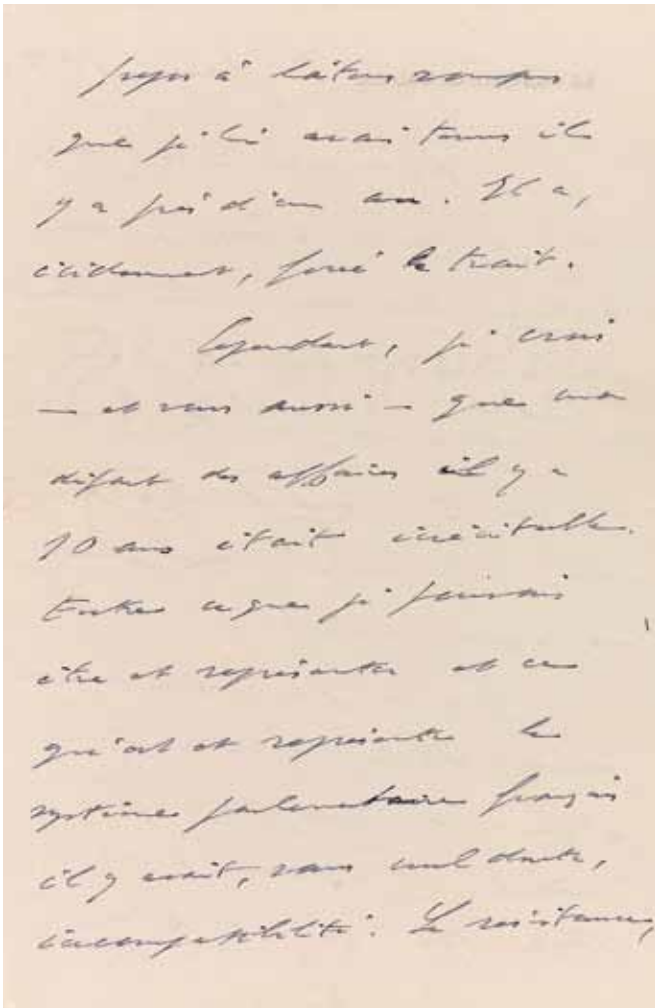 propos à bâtons rompus
que je lui avais tenus il
y a près d'un an. Il a,
évidemment, forcé le trait.
Cependant, je crois
— et vous aussi — que mon
départ des affaires il y a
10 ans était inévitable.
Entre ce que je pouvais
être et représenter et ce
qu'est et représente le
système parlementaire français
il y avait, sans nul doute,
incompatibilité. La résistance,